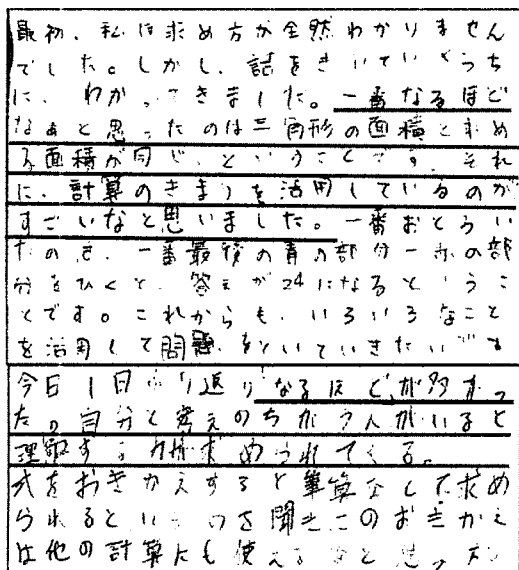 最初、私は求め方が全然わかりません
でした。しかし、話をきいていくうち
に、わかってきました。一番なるほど
なぁと思ったのは三角形の面積と求め
る面積が同じ、ということです。それ
に、計算のきまりを活用しているのが
すごいなと思いました。一番おどろい
たのは、一番最後の青の部分ー赤の部
分をひくと、答えが24になるというこ
とです。これからも、いろいろなこと
を活用して問題をといていきたいです
今日1日ふり返りなるほどが多すぎっ
た。自分と考えのちがう人がいると
理解する力が求められてくる。
式をおきかえすると筆算なしで求め
られるというのを聞きこのおきかえ
は他の計算にも使えるなと思った